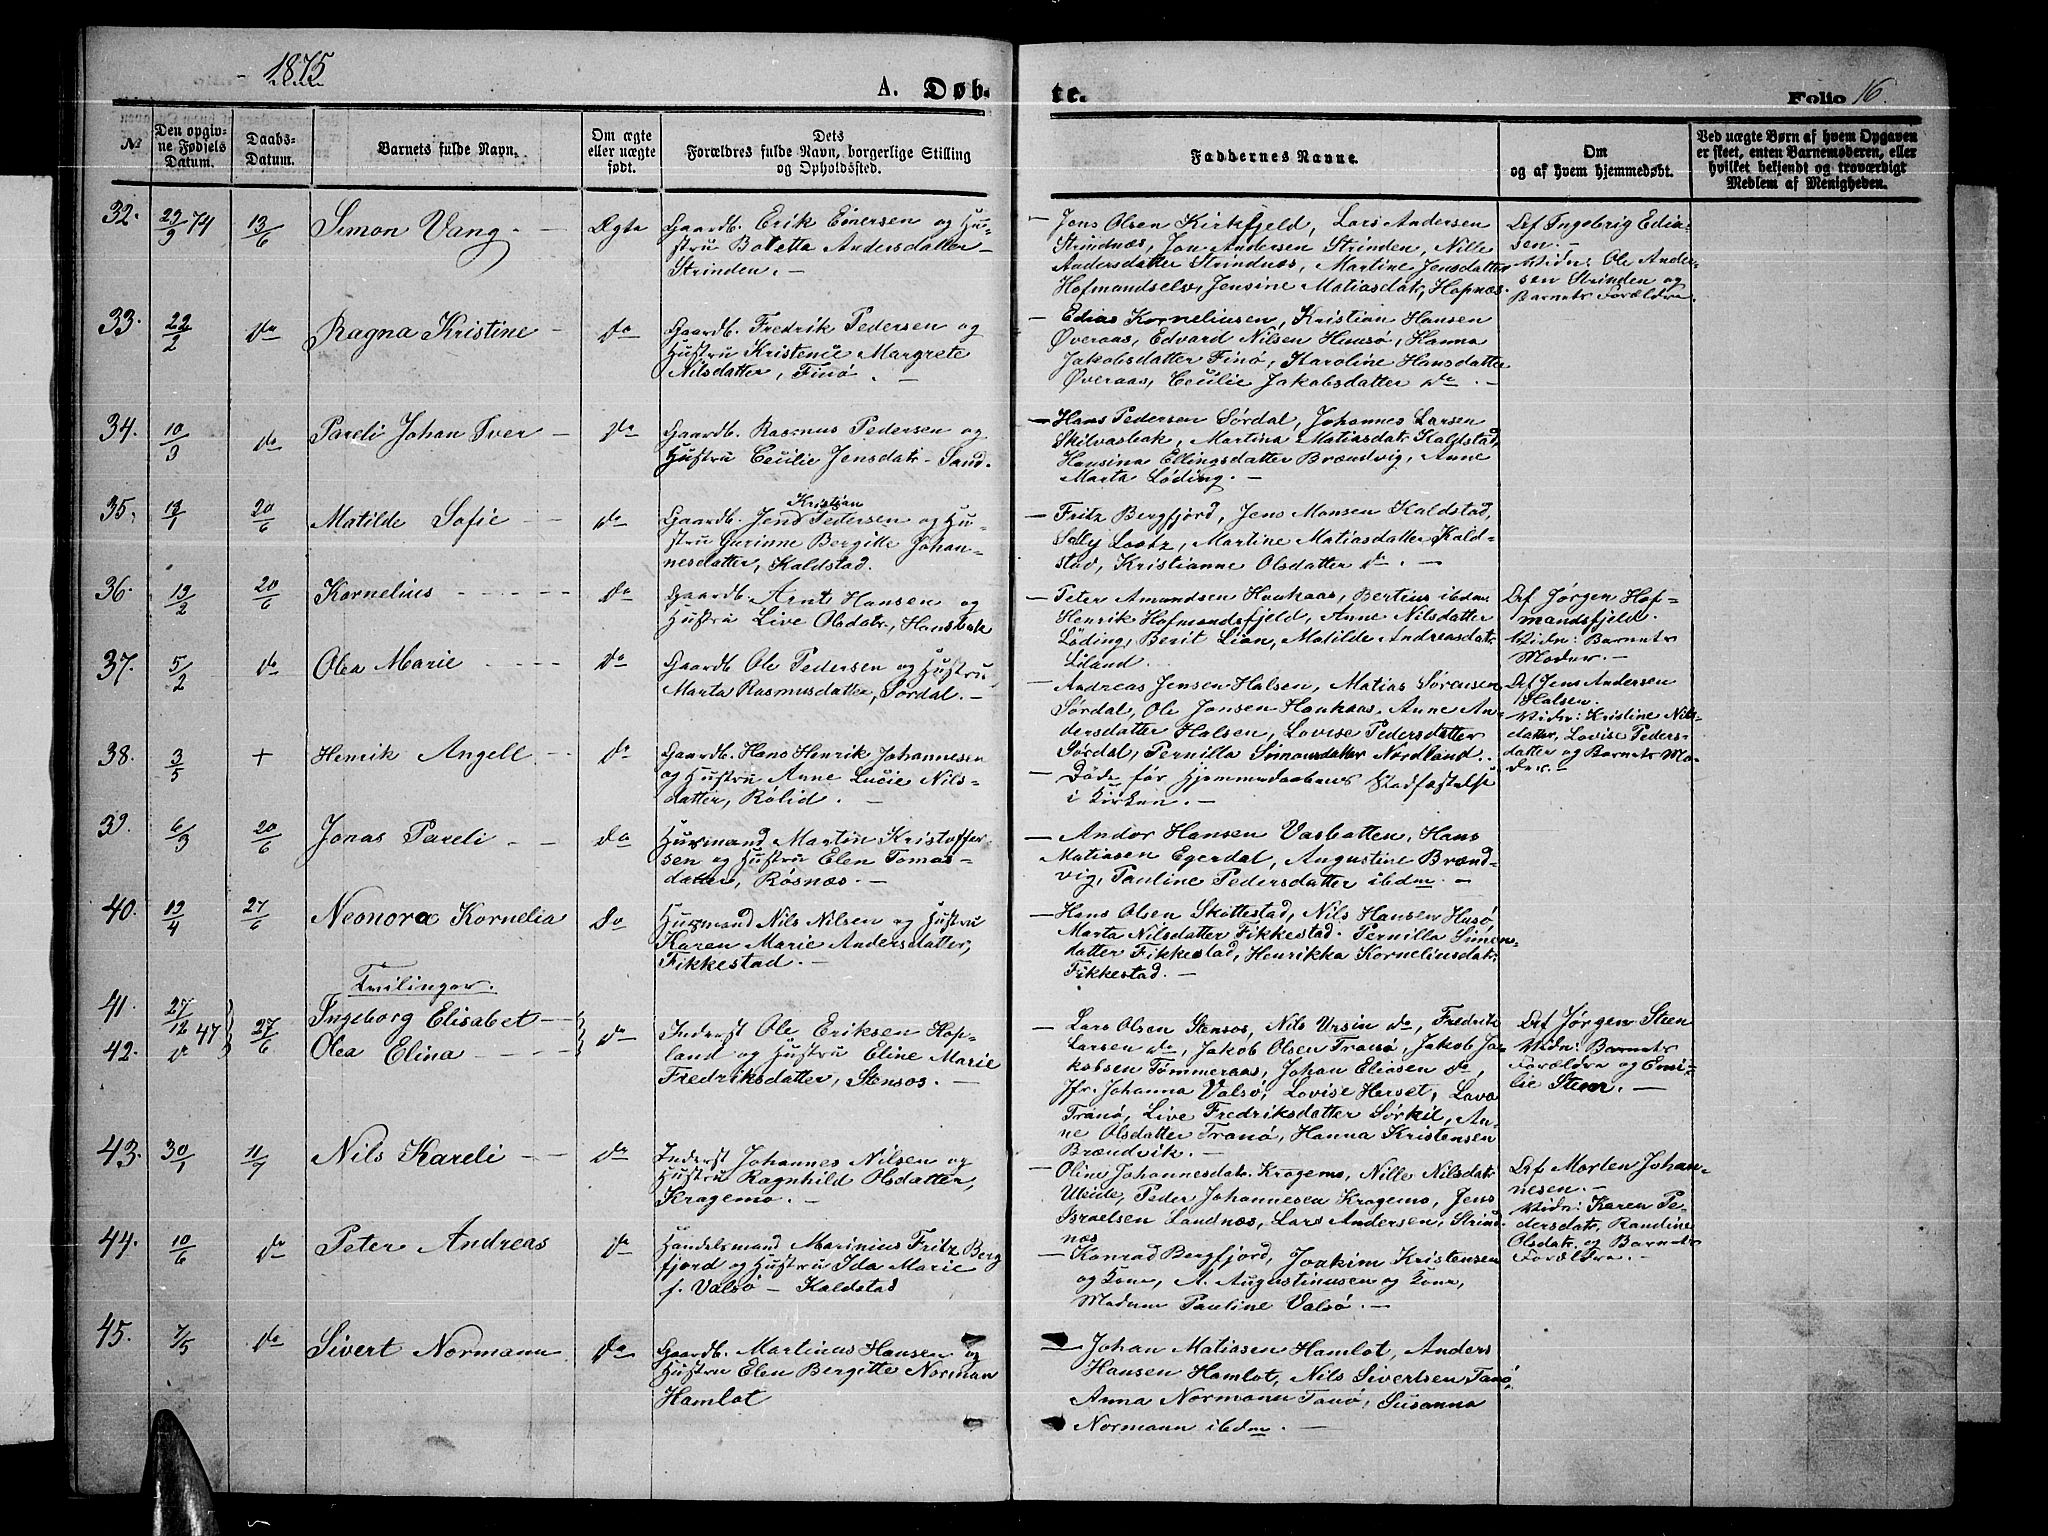 1875
A. Døb-
te.
Folio 16.
No
Den opgiv-
ne Fødsels
Datum.
Daabs-
Datum.
Barnets fulde Navn.
Om ægte
eller uægte
født.
Dets
Forældres fulde Navn, borgerlige Stilling
og Opholdssted.
Faddernes Navne.
Om
og af hvem hjemmedøbt.
Ved uægte Børn af hvem Opgaven
er skeet, enten Barnemoderen, eller
hvilket bekjendt og troværdigt
Medlem af Menigheden.
32. 29/9 74 13/6 Simon Vang. Ægte
Gaardb. Erik Einersen og Hu-
stru Boletta Andersdatter
Strinden.
Jens Olsen Kirkfjeld, Lars Andersen
Strindnæs, Jon Andersen Strinden, Nille
Andersdatter Strindnæs, Martine Jensdatter
Hofmandselv, Jensine Matiasdatr, Hopnæs.
Def Ingebrig Edia-
sen.
Vidn: Ole Ander-
sen Strinden og
Barnets Forældre
33. 22/2 do Ragna Kristine do
Gaardb. Fredrik Pedersen og
Hustru Kristence Margrete
Nilsdatter, Finø.
Edias Korneliusen, Kristian Hansen
Øveraas, Edvard Nilsen Husø, Hanna
Jakobsdatter Finø, Karoline Hansdatter
Øveraas, Cecilie Jakobsdatter do.
34. 10/3 do Pareli Johan Iver do
Gaardb. Rasmus Pedersen og
Hustru Cecilie Jensdatr Sand.
Hans Pedersen Sørdal, Johannes Larsen
Skilvasbak, Martina Matiasdatr Kaldstad,
Hansina Ellingsdatter Brændvig, Anne
Marta Løding.
35. 13/1 20/6 Matilde Sofie do
Kristian
Gaardb. Jens Pedersen og Hu-
stru Gurinne Bergitte Johan-
nesdatter, Kaldstad.
Fritz Bergfjord, Jens Monsen Kaldstad,
Selly Lootz, Martine Matiasdatter Kald-
stad, Kristianne Olsdatter do.
36. 19/2 20/6 Kornelius do
Gaardb. Arnt Hansen og
Hustru Live Olsdatr, Hansbak
Peter Amundsen Haukaas, Bertius ibdm.
Henrik Hofmandsfjeld, Anne Nilsdatter
Løding, Berit Lian, Matilde Andreasdatr
Liland.
Def Jørgen Hof-
mandsfjeld.
Vidn: Barnets
Moder.
37. 5/2 do Olea Marie do
Gaardb Ole Pedersen og Hustru
Marta Rasmusdatter, Sørdal.
Andreas Jensen Halsen, Matias Sørensen
Sørdal, Ole Jonsen Haukaas, Anne An-
dersdatter Halsen, Lovise Pedersdatter
Sørdal, Pernilla Simonsdatter Nordland.
Def Jens Andersen
Halsen.
Vidn: Kristine Nils-
datter, Lovise Peders-
datter og Barnets Mo-
der.
38. 3/5 + Henrik Angell do
Gaardb. Hans Henrik Johannesen
og Hustru Anne Lucie Nils-
datter, Rølid.
Døde før Hjemmedaabens Stadfæstelse
i Kirken.
39. 6/3 20/6 Jonas Pareli do
Husmand Martin Kristoffer-
sen og Hustru Elen Tomas-
datter, Røsnæs.
Andor Hansen Vasbotten, Hans
Matiasen Egerdal, Augustine Brænd-
vig, Pauline Pedersdatter ibdm.
40. 19/4 27/6 Neonora Kornelia Do
Husmand Nils Nilsen og Hustru
Karen Marie Andersdatter,
Fikkestad.
Hans Olsen Skottestad, Nils Hansen Husø
Marta Nilsdatter Fikkestad. Pernilla Simon-
datter Fikkestad, Henrikka Korneliusdatr
Fikkestad.
Tvilinger.
41. 27/12 47 27/6 Ingeborg Elisabet do
42. do Olea Elina
Inderst Ole Eriksen Hop-
land og Hustru Eline Marie
Fredriksdatter, Stensos.
Lars Olsen Stensos, Nils Ursin do, Fredrik
Larsen do, Jakob Olsen Tranø, Jakob Ja-
kobsen Tømmeraas, Johan Eliasen do,
Jfr. Johanna Valsø, Lovise Herset, Lava
Tranø, Live Fredriksdatter Sørkil, An-
ne Olsdatter Tranø, Hanna Kristensen
Brændvik.
Def Jørgen Steen
Vidn: Barnets
Forældre og Emi-
lie Steen.
43. 30/1 11/7 Nils Kareli do
Inderst Johannes Nilsen og
Hustru Ragnhild Olsdatter,
Kragemo.
Oline Johannesdatr Kragemo, Nille Nilsdatr
Uleide, Peder Johannesen Kragemo, Jens
Israelsen Landnæs, Lars Andersen, Strind-
næs
Def Morten Johan-
nesen.
Vidn: Karen Pe-
dersdatr, Randine
Olsdatr. og Barnets
Forældre.
44. 10/6 do Peter Andreas do
Handelsmand Marinius Fritz Berg
fjord og Hustru Ida Marie
f. Valsø - Kaldstad
Konrad Bergfjord, Joakim Kristensen
og Kone, A. Augustinusen og Kone,
Madam Pauline Valsø.
45. 7/5 do Sivert Normann do
Gaardb. Martinus Hansen og
Hustru Elen Bergitte Norman
Hamlot
Johan Matiasen Hamlot, Anders
Hansen Hamlot, Nils Sivertsen Tanø,
Anna Normann Tanø, Susanna
Normann ibdm.